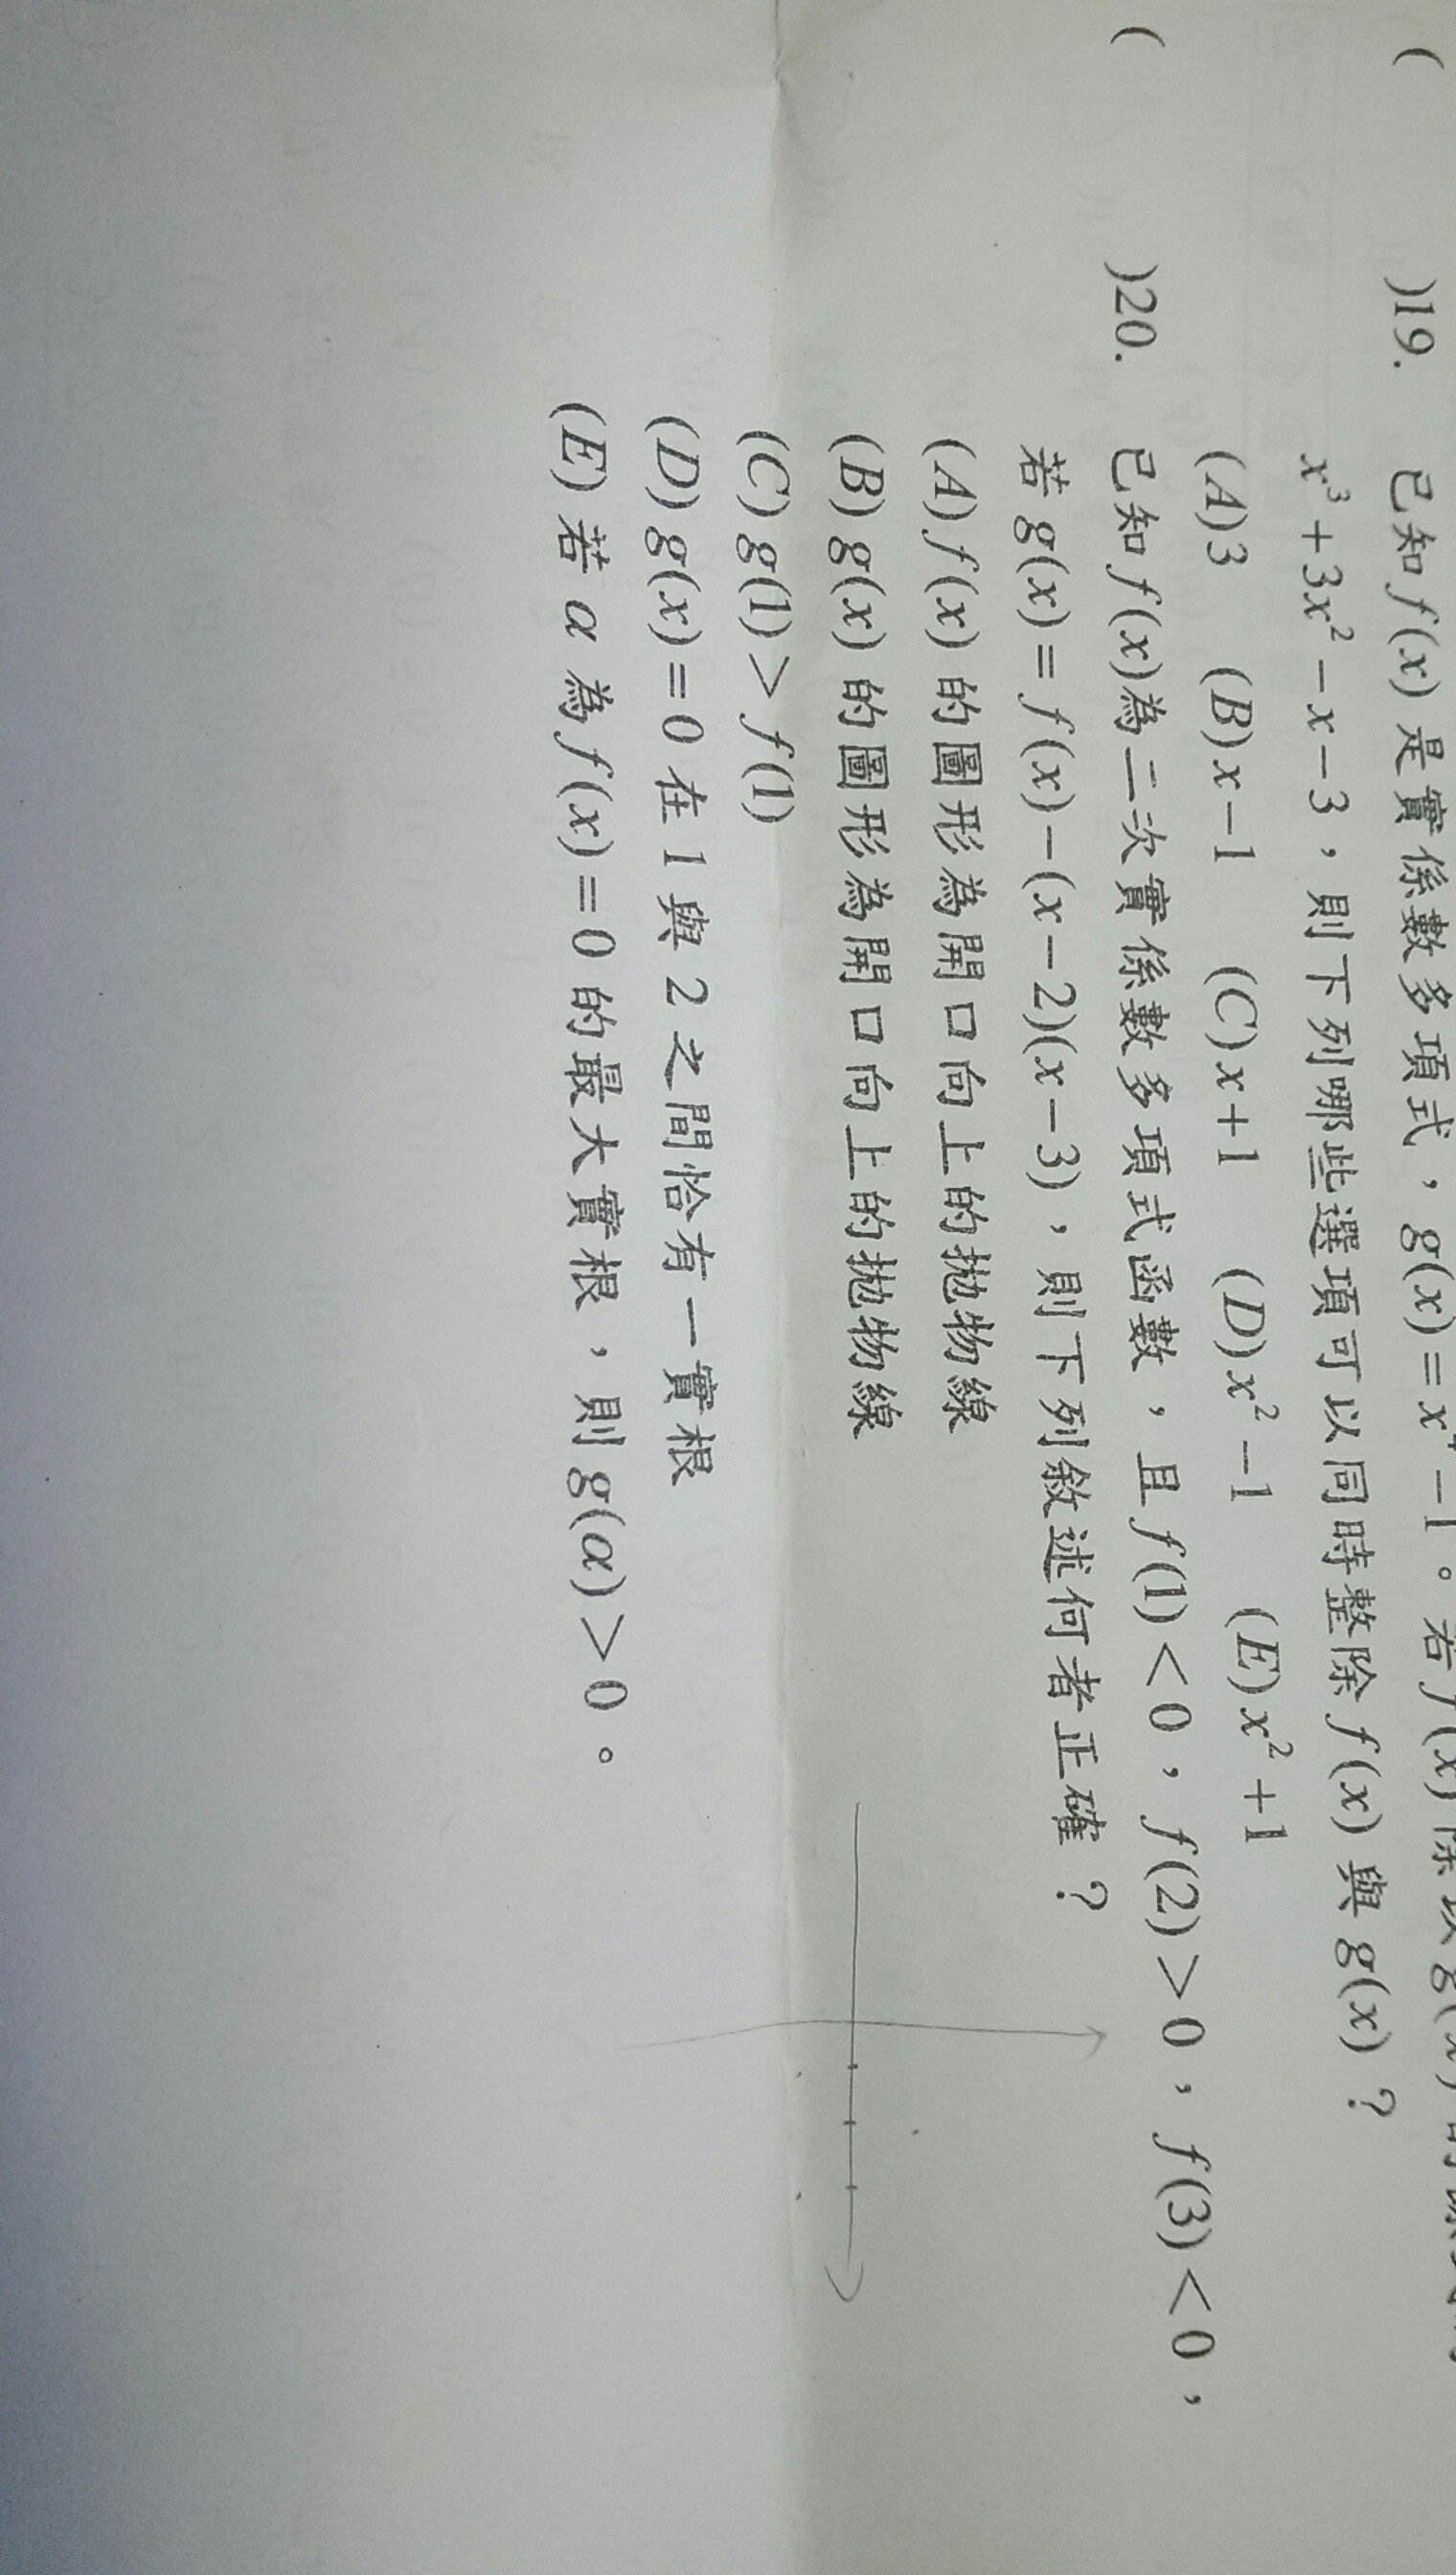 ( )19. 已知 f(x) 是實係數多項式，g(x)=x⁴-1。若 f(x) 除以 g(x)
x³+3x²-x-3，則下列哪些選項可以同時整除 f(x) 與 g(x)？
(A)3 (B)x-1 (C)x+1 (D)x²-1 (E)x²+1
( )20. 已知 f(x)為二次實係數多項式函數，且 f(1)<0，f(2)>0，f(3)<0，
若 g(x)=f(x)-(x-2)(x-3)，則下列敘述何者正確？
(A) f(x) 的圖形為開口向上的拋物線
(B) g(x) 的圖形為開口向上的拋物線
(C) g(1)>f(1)
(D) g(x)=0 在 1 與 2 之間恰有一實根
(E) 若 α 為 f(x)=0 的最大實根，則 g(α)>0。